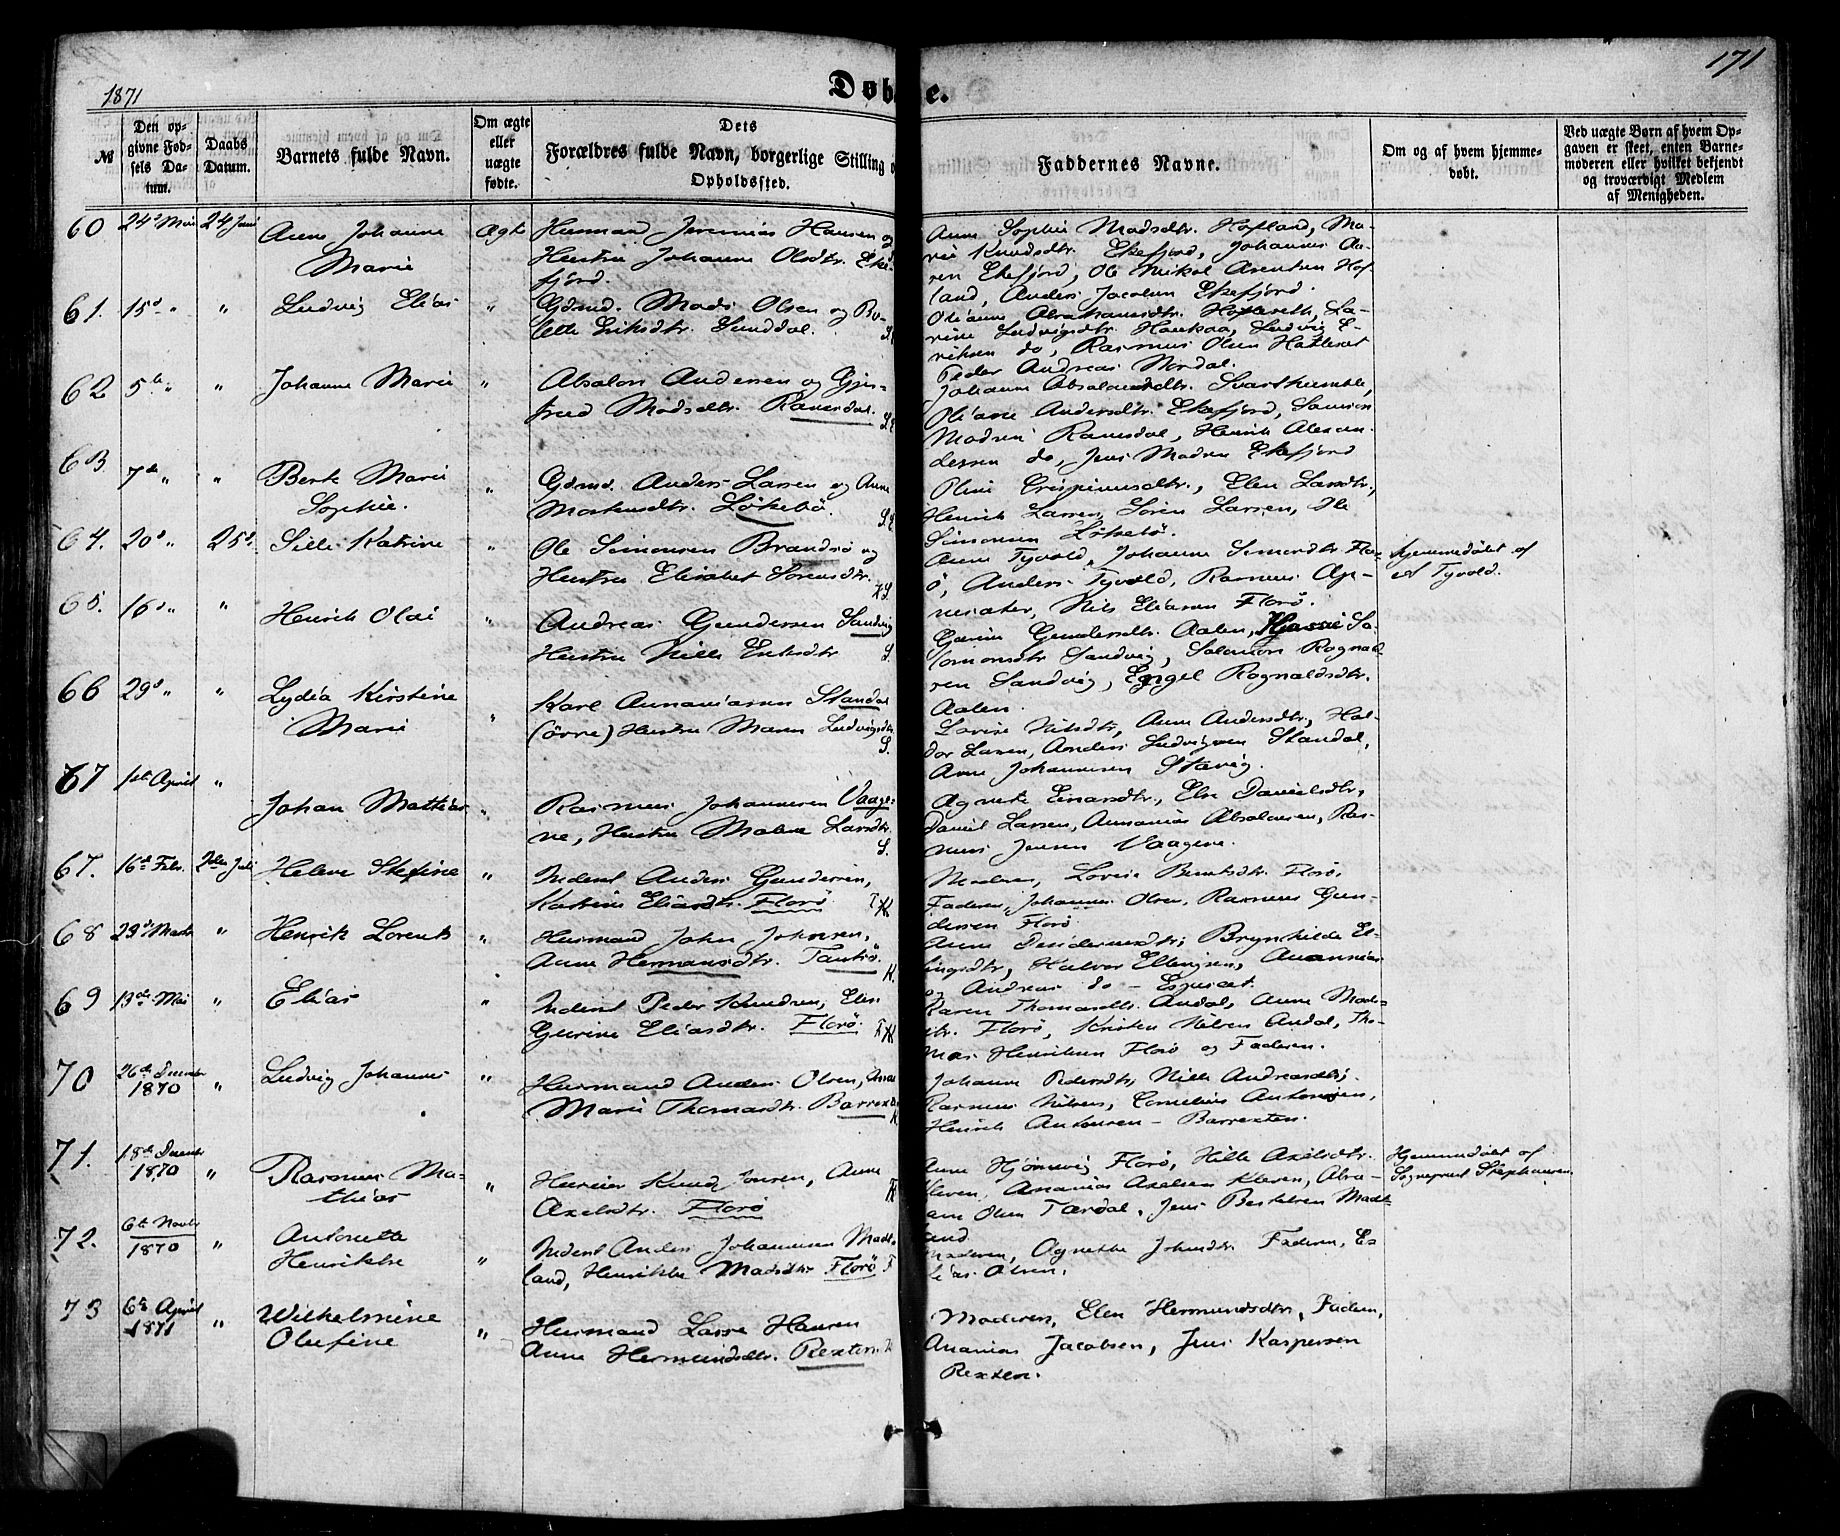 1871
Døbte.
171
№
Den opgivne Fødsels Datum.
Daabs Datum.
Barnets fulde Navn.
Om ægte eller uægte fødte.
Dets Forældres fulde Navn, borgerlige Stilling o
Opholdssted.
Faddernes Navne.
Om og af hvem hjemmedøbt.
Ved uægte Børn af hvem Opgaven er skeet, enten Barnemoderen eller hvilket bekjendt og troværdigt Medlem af Menigheden.
60 24de Mai 24 Juni Anne Johanne Ægte Husmand Jeremias Hansen og
Marie Hustru Johanne Olsdtr. Eke-
fjord.
Anne Sophie Madsdtr. Hofland, Ma-
rie Knudsdtr. Ekefjord, Johannes An-
Ekefjord, Ole Nikol Arentsen Hof-
land, Anders Jacobsen Ekefjord.
61. 15d " " Ludvig Elias " Gdmd. Mads Olsen og Bo-
lette Eriksdtr. Sunddal.
Oliane Abrahamsdtr. La-
Ludvigsdtr. Haukaa, Ludvig E-
riksen do, Rasmus Olsen
Peder Andreas Nordal.
62 5te " " Johanne Marie " Absalon Andersen og Gjer-
trud Madsdtr. Ramsdal.
Johanne Absalonsdtr. Svarthumle,
Oliane Andersdtr. Ekefjord, Samson
Madsen Ramsdal, Henrik Alexan-
dersen do, Jens Madsen Ekefjord
63 7de " " Berte Marie " Gdmd. Anders Larsen og Anne
Sophie. Markusdtr. Løkebø.
Oline Crispinusdtr., Elen Larsdtr.,
Henrik Larsen, Søren Larsen, Ole
Simonsen Løkebø.
64. 20d " 25d. Sille Katrine " Ole Simonsen Brandsø og
Hustru Elisabet Sørensdtr.
Anne Tyvold, Johanne Simonsdtr. Flo-
rø, Anders Tyvold, Rasmus
Nils Eliasen Florø.
Hjemmedøbt af
A Tyvold.
65. 16d " " Henrik Olai " Andreas Gundersen Sandvig
Hustru Nille Eriksdtr S.
Gurine Gundersdtr. Aalen, Sa-
lomonsdtr Sandvig, Salamon Rognald-
sen Sandvig, Engel Rognaldsdtr.
Aalen.
66 29d " " Lydia Kirstine " Karl Annaniasen Standal
Marie (øvre) Hustru Maren Ludvigsdtr.
S.
Lovise Nilsdtr, Anne Andersdtr, Hal-
dor Larsen, Anders Ludvigsen Standal,
Arne Johannesen Stavig.
67 1ste April " Johan Mathias " Rasmus Johannesen Vaage-
ne, Hustru Malene Larsdtr.
S.
Agnete Einarsdtr, Else Danielsdtr,
Daniel Larsen, Annanias Absalonsen, Ras-
mus Jensen Vaagene.
67. 16de Febr. 2den Juli Helene Stefine " Inderst Anders Gundersen,
Katrine Eliasdtr. Florø.
Moderen, Lovise Berntsdtr. Florø,
Faderen, Johannes Olsen, Rasmus Gun-
dersen Florø
68 23d Marts " Henrik Lorents " Husmand John Johnsen,
Anne Hermansdtr. Tansø.
K.
Anne Brynhilde El-
lingsdtr, Halvor Ellingsen, Ananias
og Andreas do -
69 13de Mai " Elias " Inderst Peder Knudsen, Elen
Gurine Eliasdtr. Florø.
Karen Thomasdtr. Andal, Anne Mads-
dtr. Florø, Kristen Nilsen Andal, Tho-
mas Henriksen Florø og Faderen.
70 26de Decembr
1870 " Ludvig Johannes " Husmand Anders Olsen, Anne
Marie Thomasdtr. Barrexten
K
Johanne Pedersdtr, Nille Andreasdtr,
Rasmus Nilsen, Cornelius Antonsen,
Henrik Antonsen - Barrexten.
71. 18de Decembr
1870 " Rasmus Ma- " Huseier Knud Jonsen, Anne
thias Axelsdtr. Florø
Anne Hjønnevig Florø, Hille Axelsdtr.
Kleven, Ananias Axelsen Kleven, Abra-
ham Olsen Tærdal, Jens Bertelsen Madt-
land
Hjemmedøbt af
Sogneprest Stephansen
72. 6te Novbr
1870 " Antonette " Inderst Anders Johannesen Madt-
Henrikke land, Henrikke Madsdtr Florø F
Moderen, Agnethe Johnsdtr Faderen, E-
lias Olsen.
73 6te April
1871 " Wilhelmine " Husmand Lasse Hansen
Olufine Anne Hermundsdtr. Rexten
Moderen, Elen Hermundsdtr, Faderen,
Ananias Jacobsen, Jens Kaspersen
Rexten.